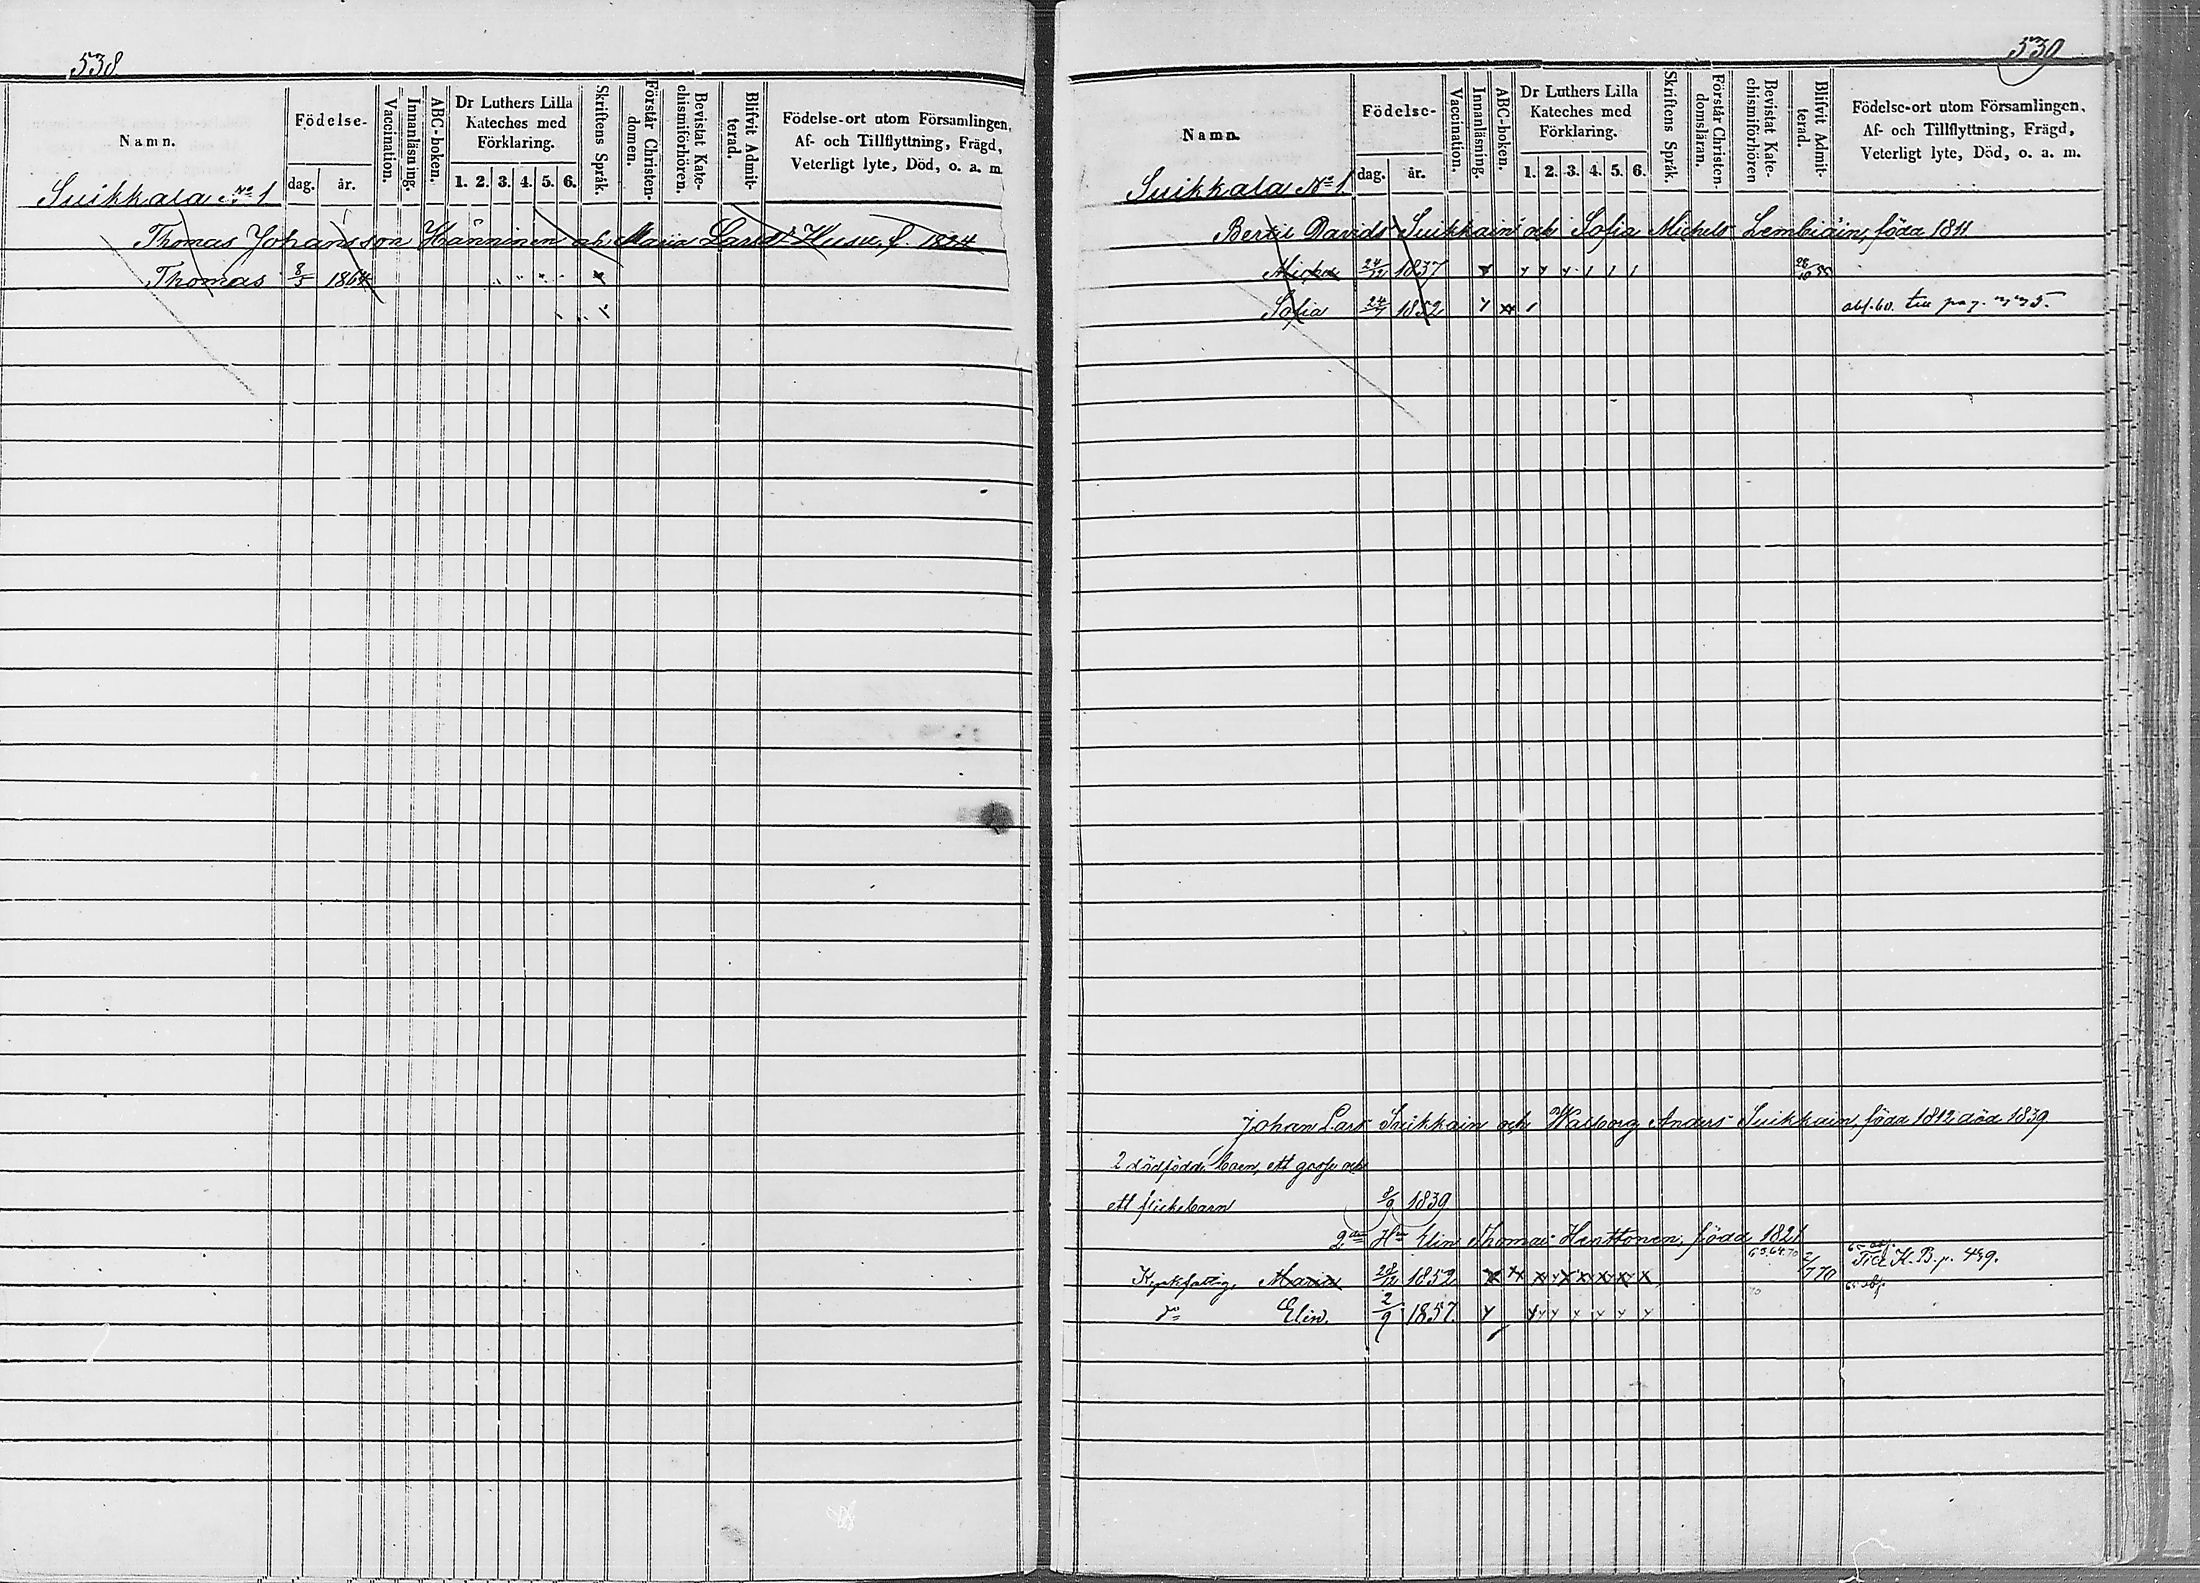 538
Namn.
Födelse-
dag. år.
Vaccination.
Innanläsning.
ABC-boken.
Dr Luthers Lilla
Kateches med
Förklaring.
1. 2. 3. 4. 5. 6.
Skriftens Språk.
Förstår Christen-
domen.
Bevistat Kate-
chismiförhören.
Blifvit Admit-
terad.
Födelse-ort utom Församlingen,
Af- och Tillflyttning, Frägd,
Veterligt lyte, Död, o. a. m.
Suikkala No 1
Thomas Johansson Hänninen och Maria Larsdr Husu, f. 1824
Thomas 8/5 1864
539
Namn.
Födelse-
dag. år.
Vaccination.
Innanläsning.
ABC-boken.
Dr Luthers Lilla
Kateches med
Förklaring.
1. 2. 3. 4. 5. 6.
Skriftens Språk.
Förstår Christen-
domsläran.
Bevistat Kate-
chismiförhören
Blifvit Admit-
terad.
Födelse-ort utom Församlingen,
Af- och Tillflyttning, Frägd,
Veterligt lyte, Död, o. a. m.
Suikkala No 1
Bertil Davids Suikkain och Sofia Michels Lembiäin, föda 1811
Michel 24/12 1837
Sofia 24/7 1852 till pag.
Johan Lars Suikkain och Walborg Anders Suikkain, föda 1812 död 1839
2 dödfödda barn, ett gosse och
ett flickebarn 8/9 1839
2dra Hu Elin Thomas Hinttonen, född 1821
Maria 28/12 1852 2/7 70 Till K.B. p. 449.
Elin. 2/9 1857.